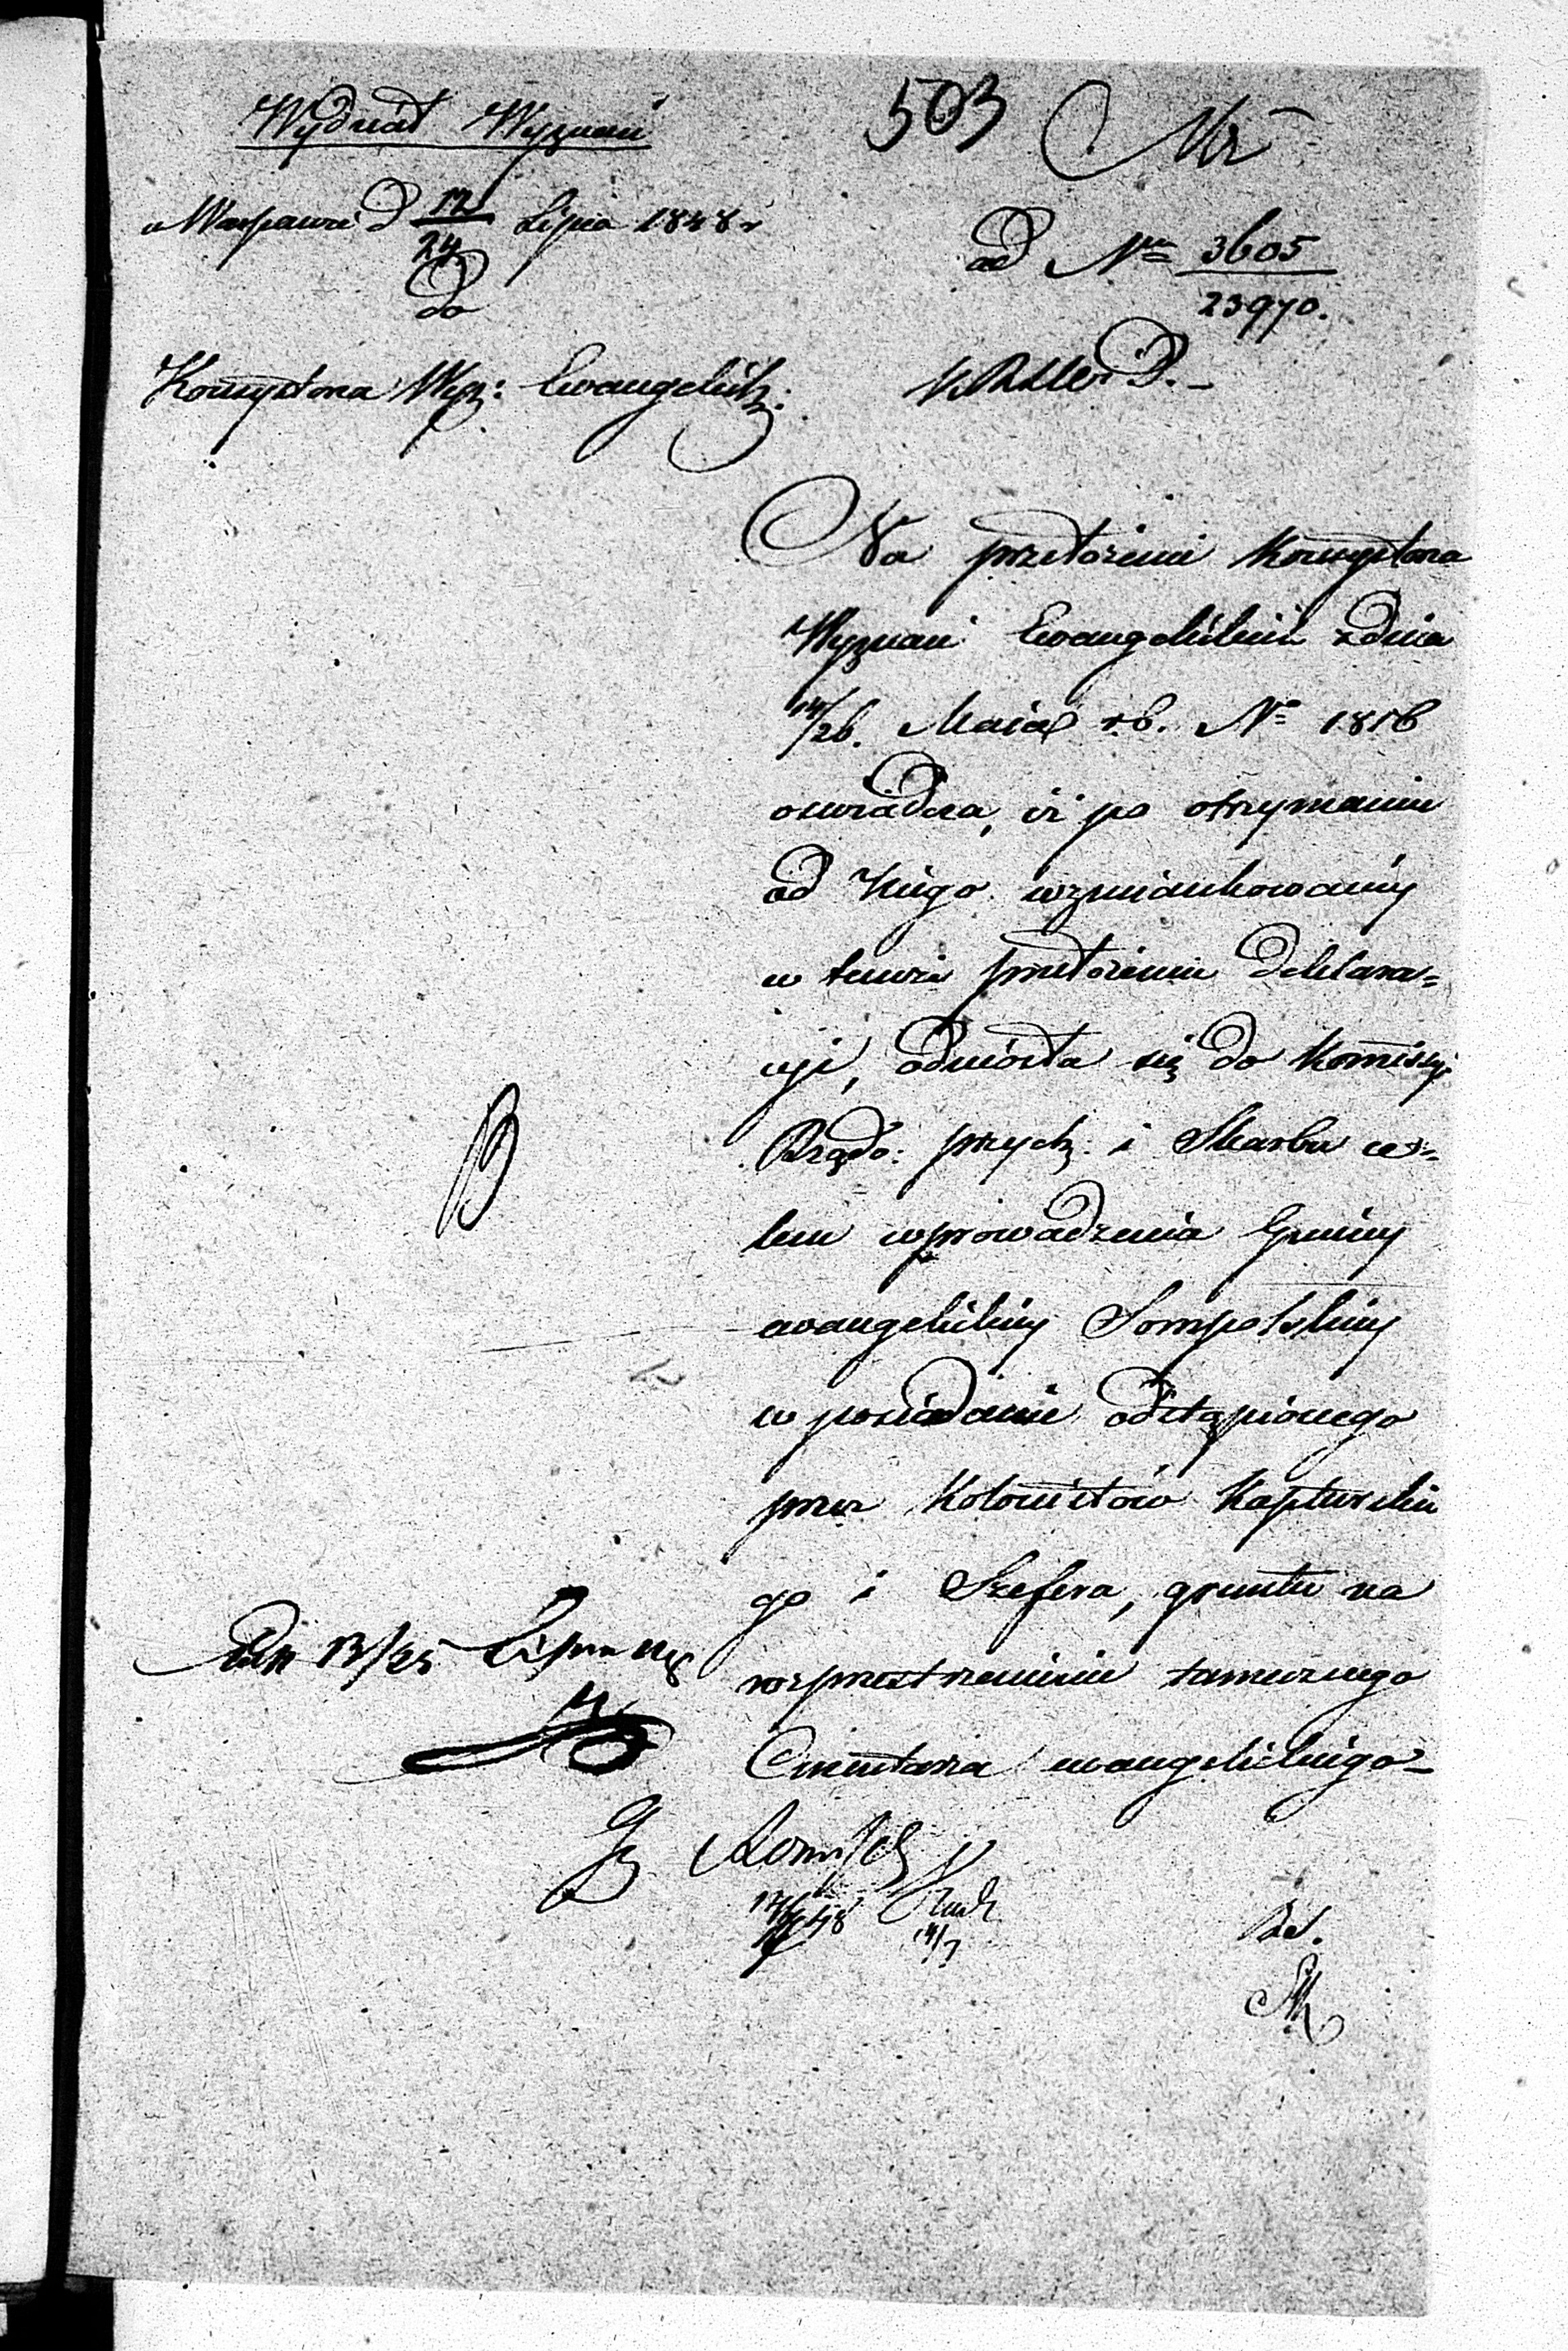 Wydział Wyznań
503
Nr
w Warszawie d 12/24 Lipca 1848 r
do
ad Nrm 3605/23970.
Konsystorza Wyz: Ewangelick:
Na przełożenie Konsystorza
Wyznań Ewangelickich z dnia
14/26. Maja r.b. No 1816
oświadcza, iż po otrzymaniu
od Niego wzmiankowanej
w temże przełożeniu deklara=
cji, odniosła się do Komissyi
Rządo: przych: i Skarbu ce=
lem wprowadzenia Gminy
ewangelickiej Sompolskiej
w posiadanie odstąpionego
przez Kolonistów Kapturskie
go i Szefera, gruntu na
rozprzestrzenienie tamecznego
Cmentarza ewangelickiego
13/25 Lipca
14/7